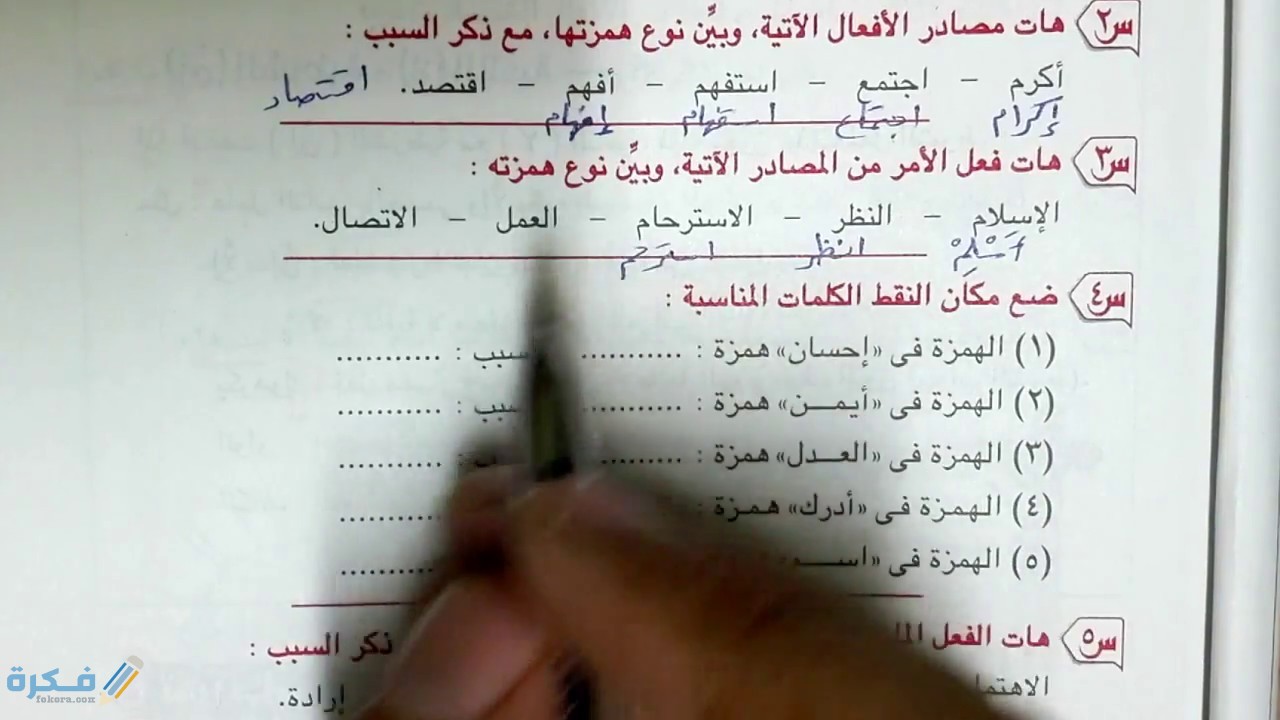 س٢ هات مصادر الأفعال الآتية، وبيِّن نوع همزتها، مع ذكر السبب :
أكرم – اجتمع – استفهم – أفهم – اقتصد. اقتصاد
إكرام اجتماع استفهام إفهام
س٣ هات فعل الأمر من المصادر الآتية، وبيِّن نوع همزته :
الإسلام – النظر – الاسترحام – العمل – الاتصال.
أَسْلِمْ انْظر استَرحم
س٤ ضع مكان النقط الكلمات المناسبة :
(١) الهمزة فى «إحسان» همزة : ........... سبب : ...........
(٢) الهمزة فى «أيمـــن» همزة : ........... ...........
(٣) الهمزة فى «العــدل» همزة : ......... ...........
(٤) الهمزة فى «أدرك» همزة : ..........
(٥) الهمزة فى ..........
س٥ هات الفعل ذكر السبب :
إرادة.
فكرة
fokera.com